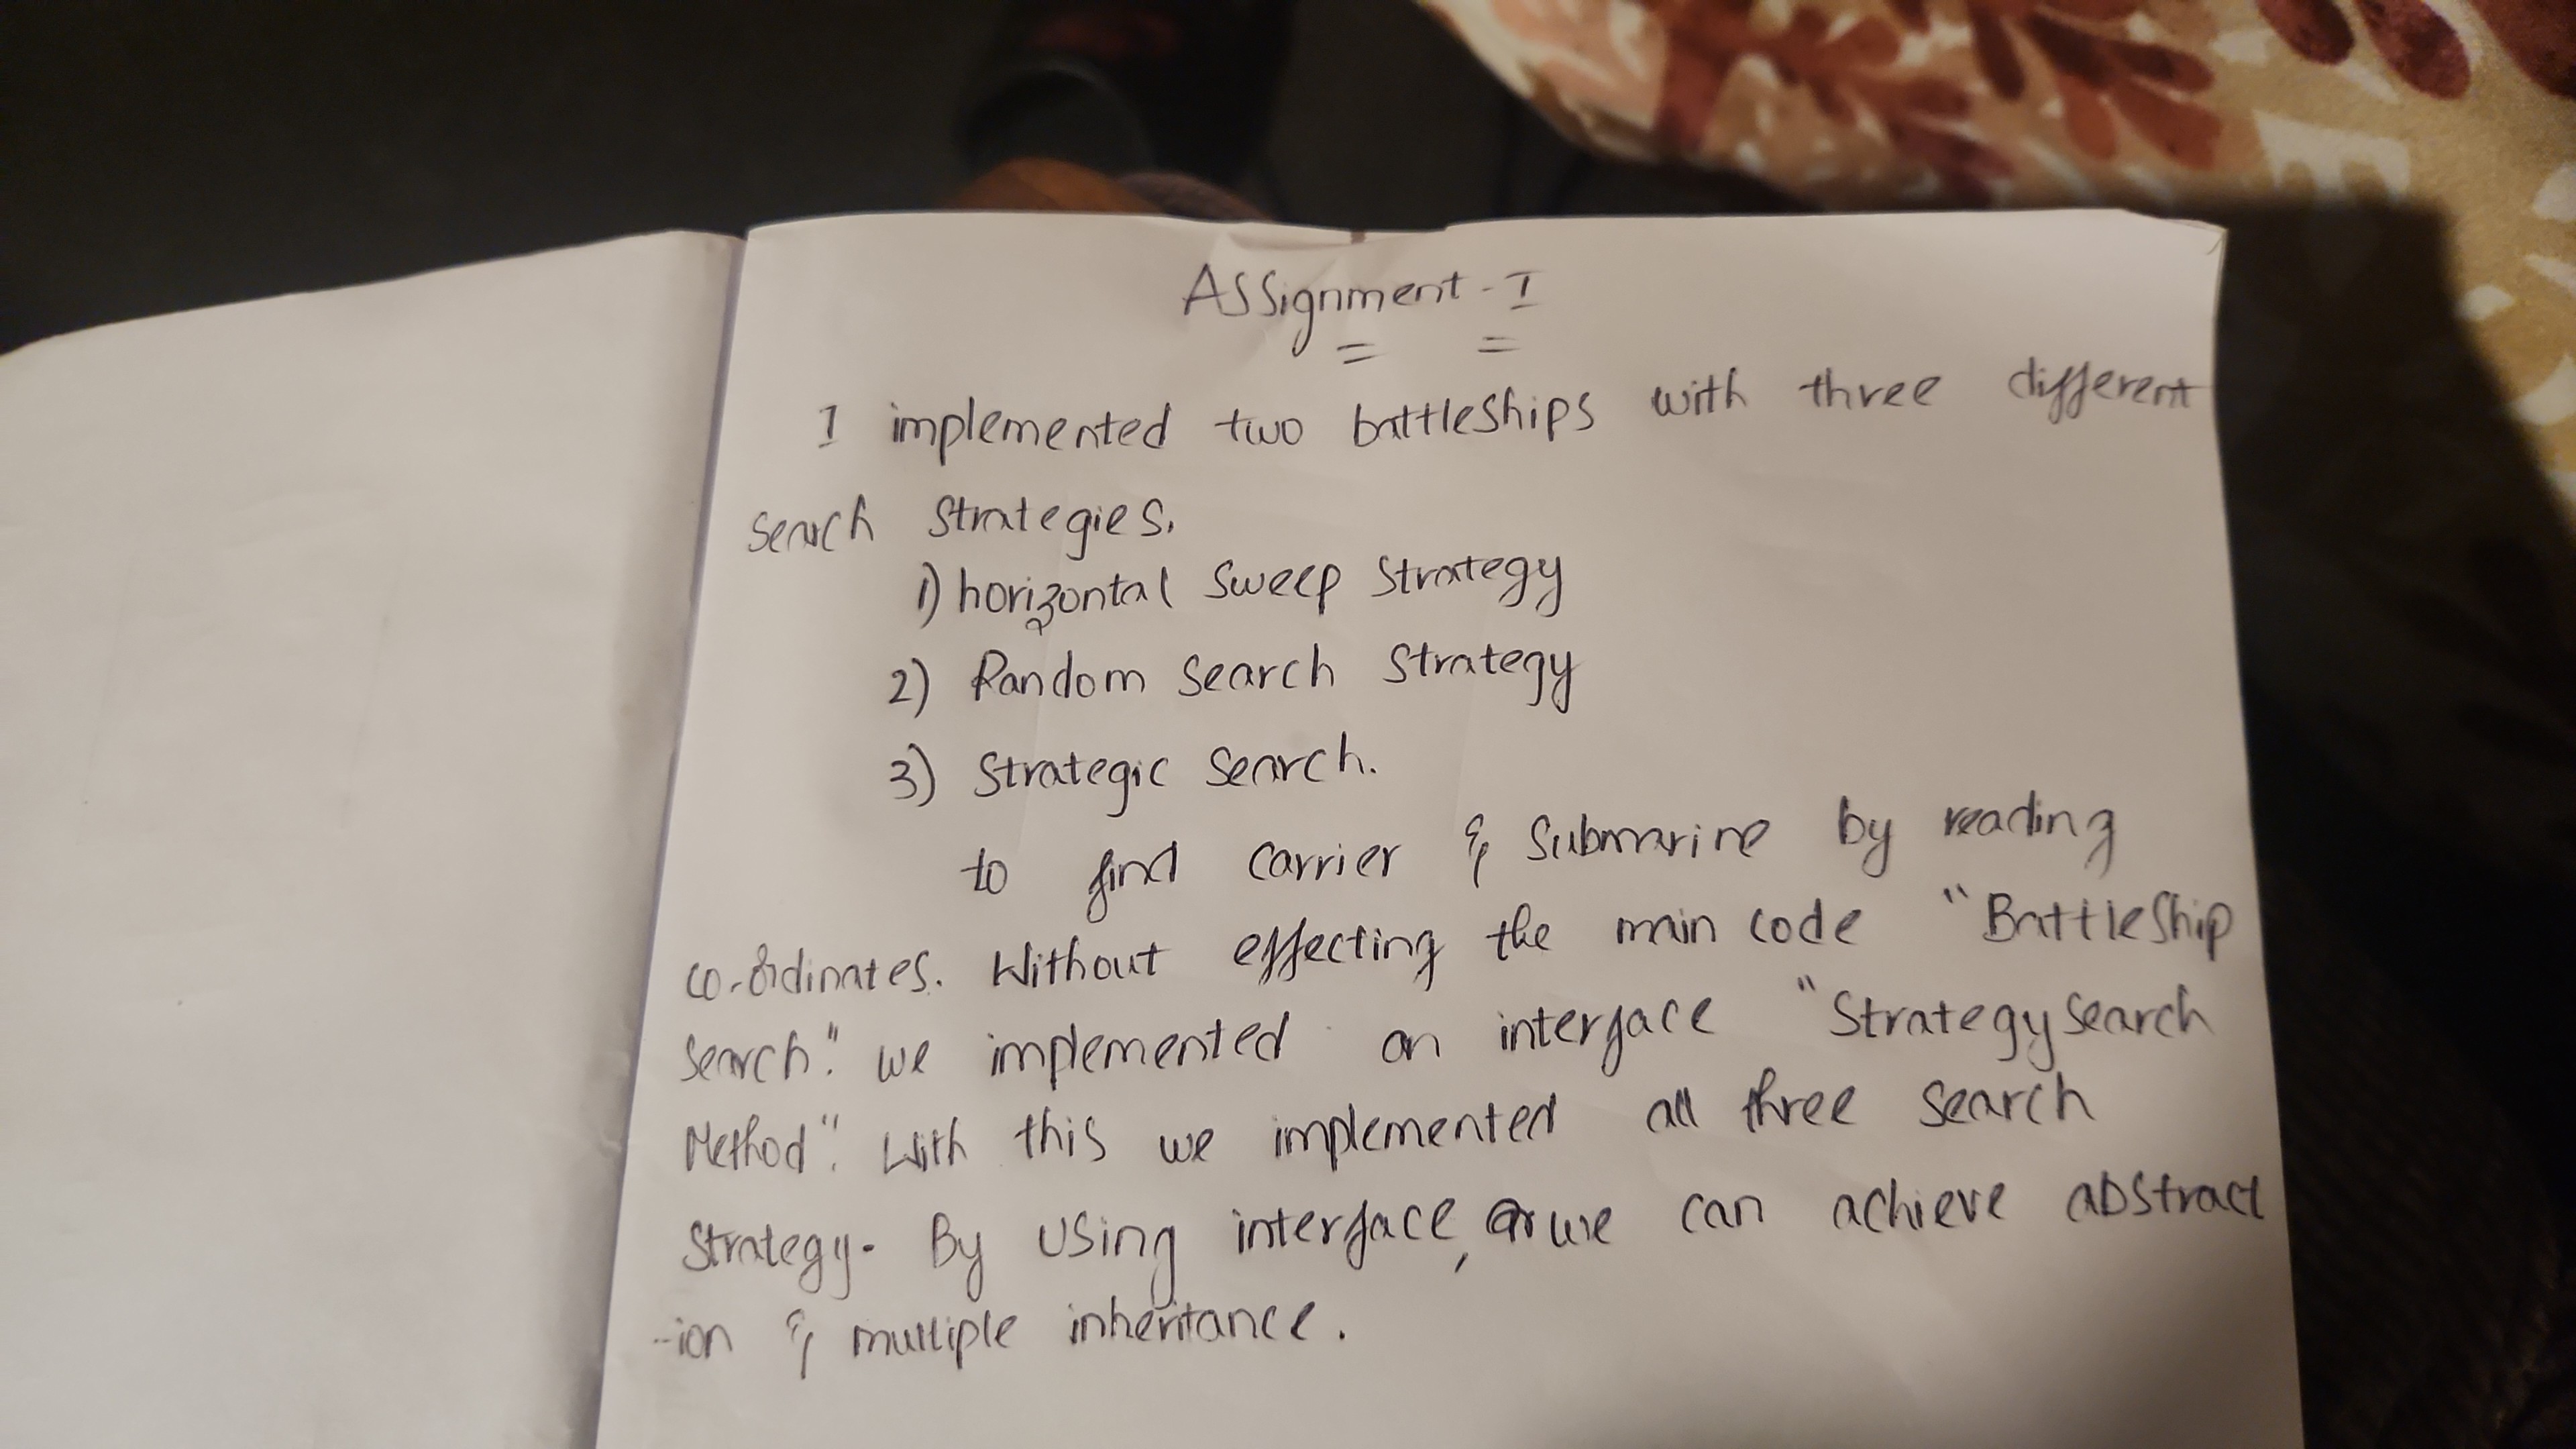 Assignment - I
I implemented two battleships with three different
search strategies.
1) horizontal sweep strategy
2) Random search strategy
3) Strategic search.
to find carrier & submarine by reading
co-ordinates. Without effecting the main code "Battleship
search". we implemented an interface "Strategy search
Method". With this we implemented all three search
strategy. By using interface, we can achieve abstract
-ion & multiple inheritance.